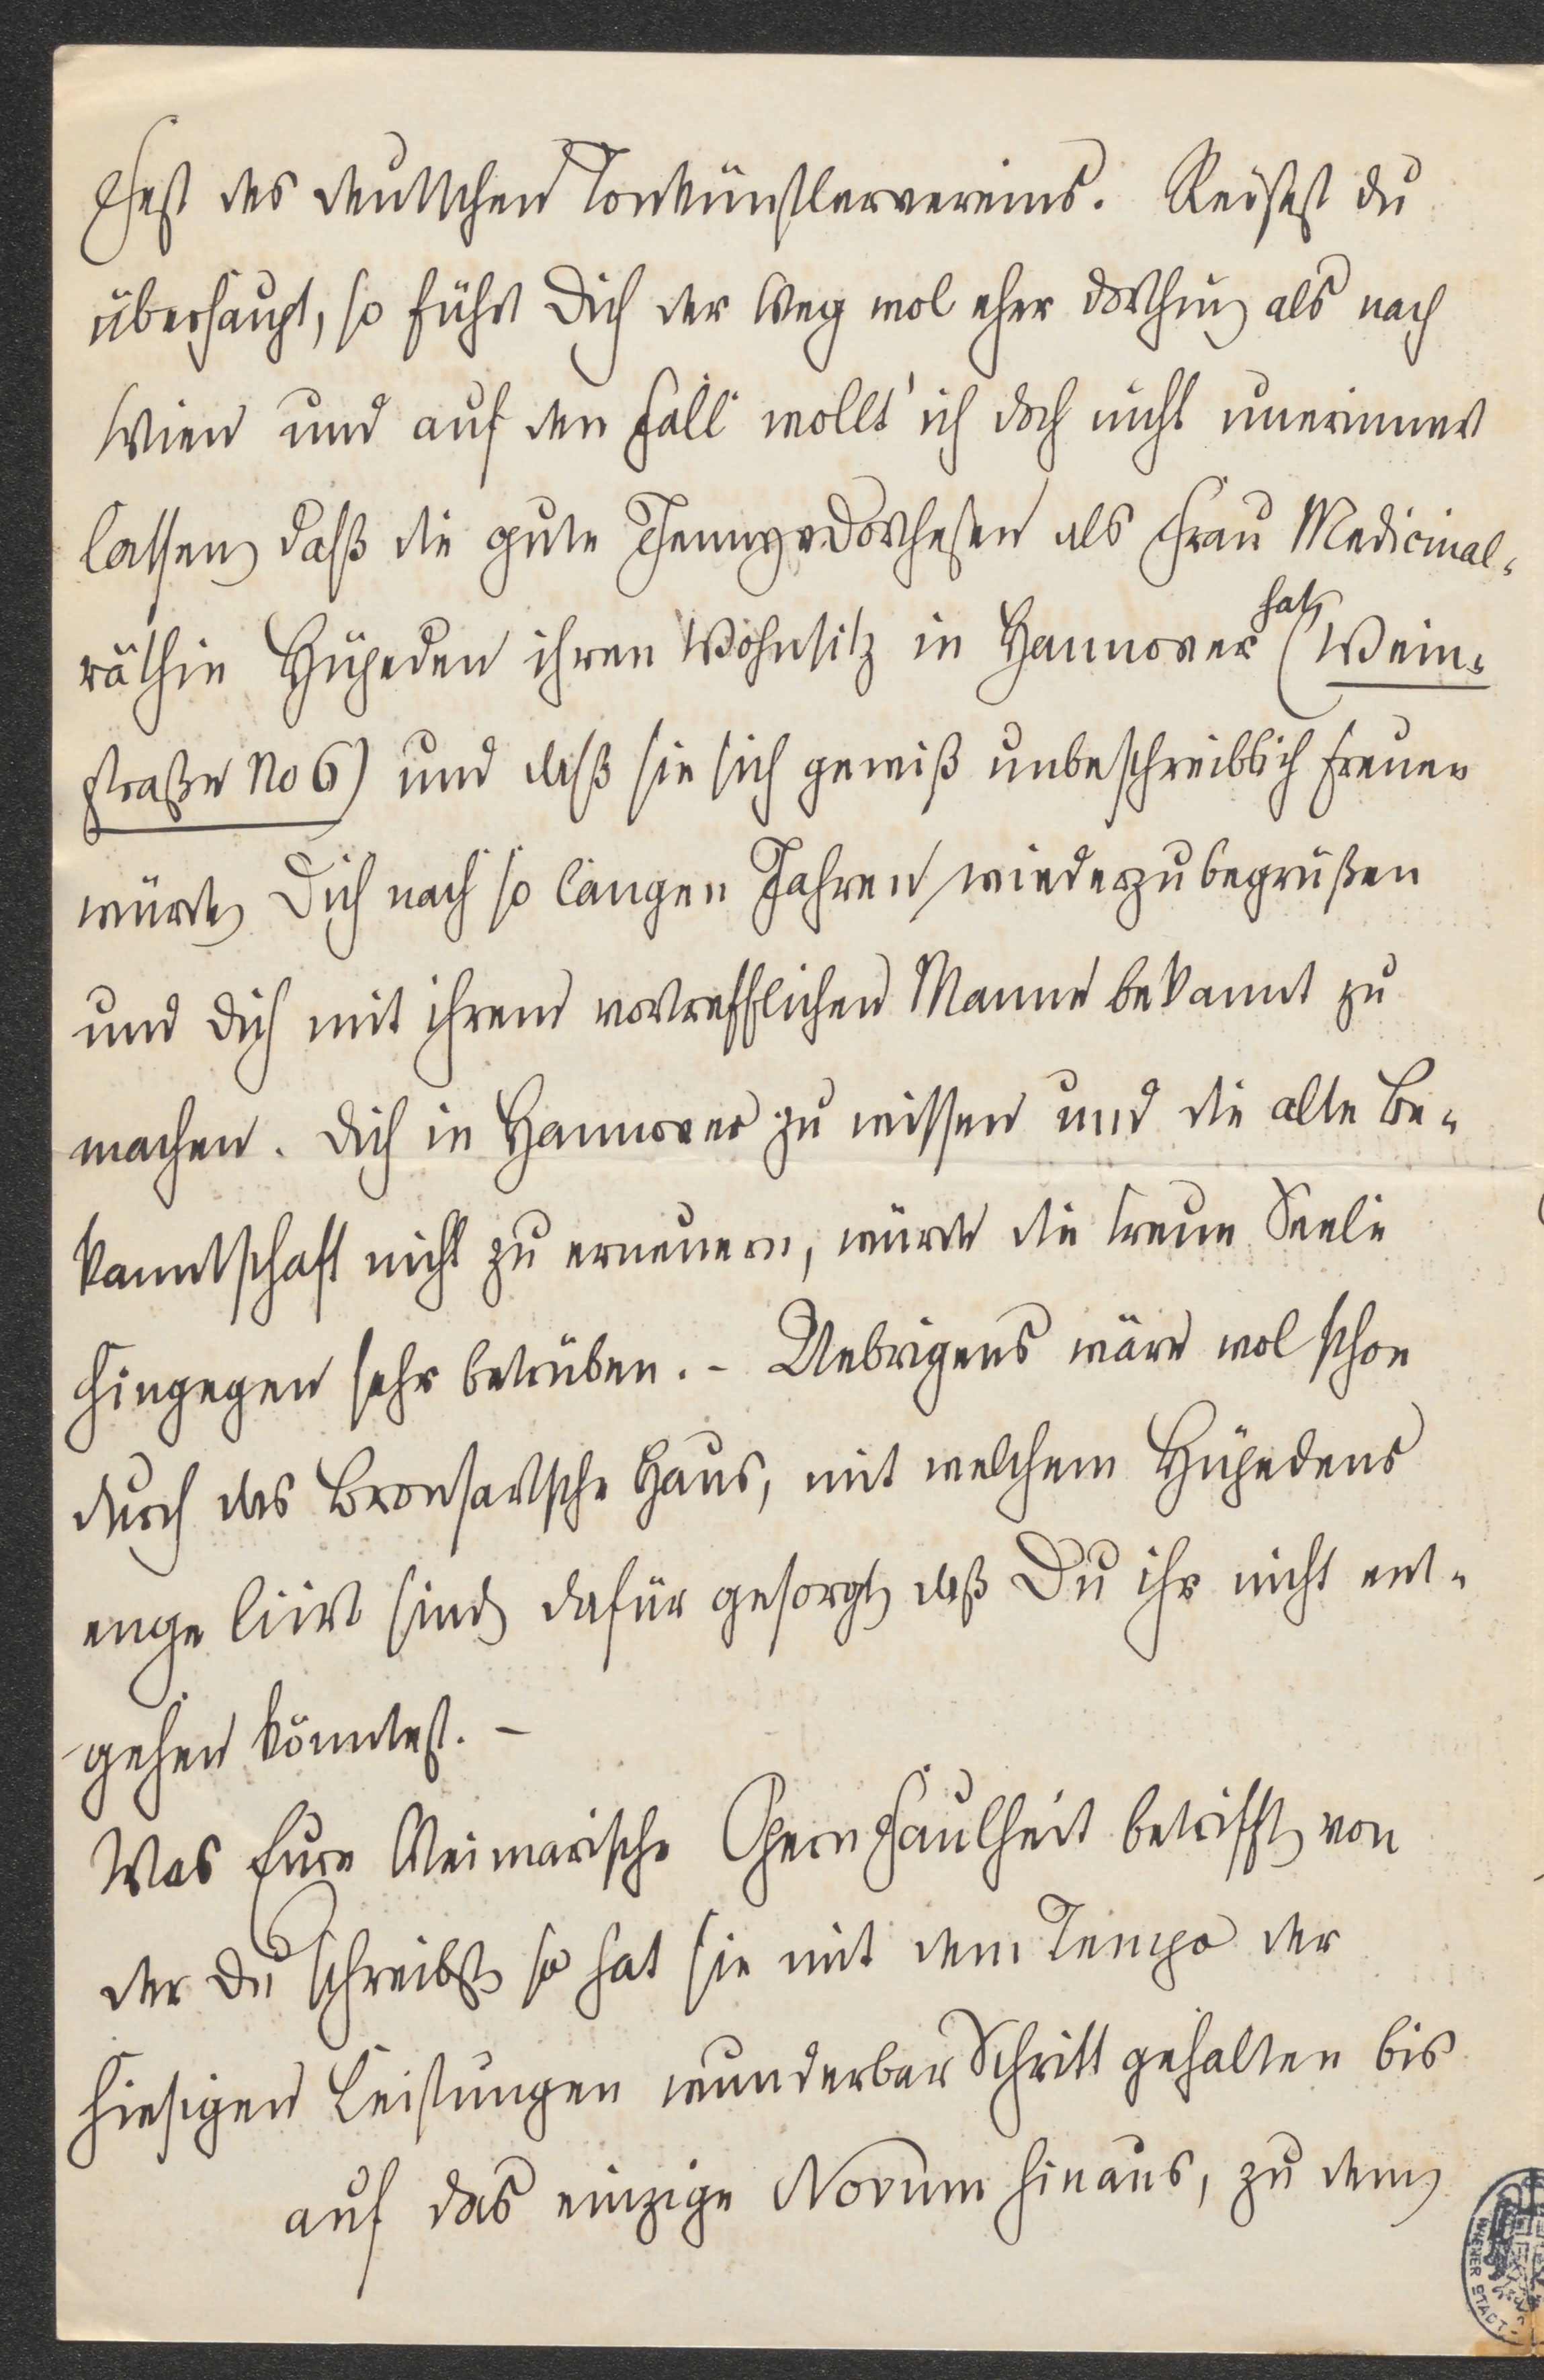 Fest des deutschen Tonkünstlervereins. Reisest du
überhaupt, so führt Dich der Weg wol eher dorthin, als nach
Wien und auf den Fall wollt' ich doch nicht unerinnert
lassen, daß die gute als Frau Medicinal-
räthin Hüpeden ihren Wohnsitz in Hannover hat, (Wein-
straße No 6) und daß sie sich gewiß unbeschreiblich freuen
würde, Dich nach so langen Jahren wiederzubegrüßen
und dich mit ihrem vortrefflichen Manne bekannt zu
machen. Dich in Hannover zu wissen und die alte Be-
kanntschaft nicht zu erneuern, würde die treue Seele
hingegen sehr betrüben. – Uebrigens wäre wol schon
durch das Bronsartsche Haus, mit welchem Hüpedens
enge liirt sind, dafür gesorgt, daß Du ihr nicht ent-
gehen könntest. –
Was Eure Weimarische Opernfaulheit betrifft, von
der Du schreibst, so hat sie mit dem Tempo der
hiesigen Leistungen wunderbar Schritt gehalten bis
auf das einzige Novum hinaus, zu dem,
WIENER STADT-